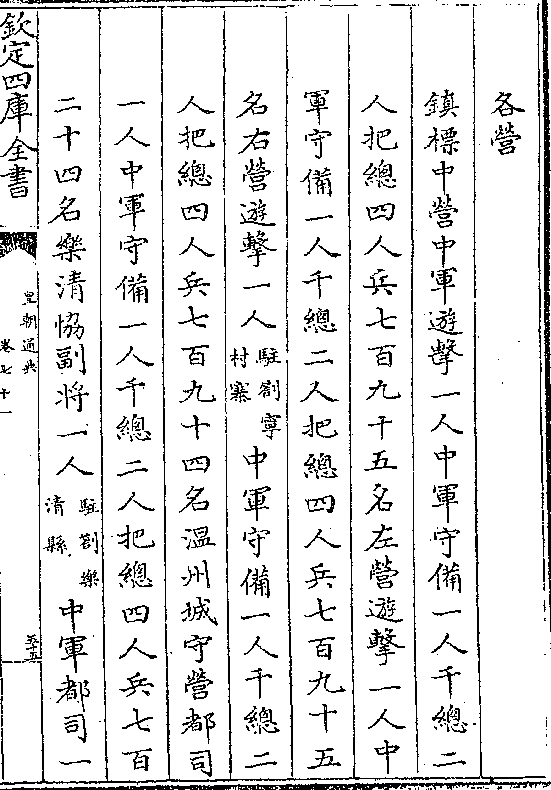 各營
鎮標中營中軍遊擊一人中軍守備一人千總二
人把總四人兵七百九十五名左營遊擊一人中
軍守備一人千總二人把總四人兵七百九十五
名右營遊擊一人駐劄寧村寨中軍守備一人千總二
人把總四人兵七百九十四名温州城守營都司
一人中軍守備一人千總二人把總四人兵七百
二十四名樂清協副將一人駐劄樂清縣中軍都司一
欽定四庫全書
皇朝通典
卷七十一
五十五